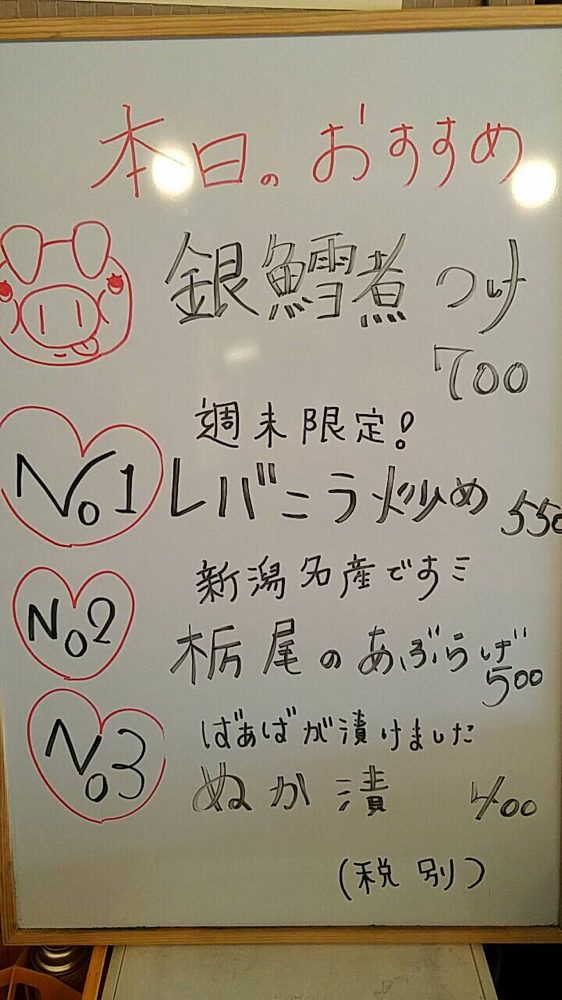 本日のおすすめ
銀鱈煮つけ
700
週末限定!
No1 レバニラ炒め 550
新潟名産です
No2 栃尾のあぶらげ 500
ばあばが漬けました
No3 ぬか漬 400
(税別)